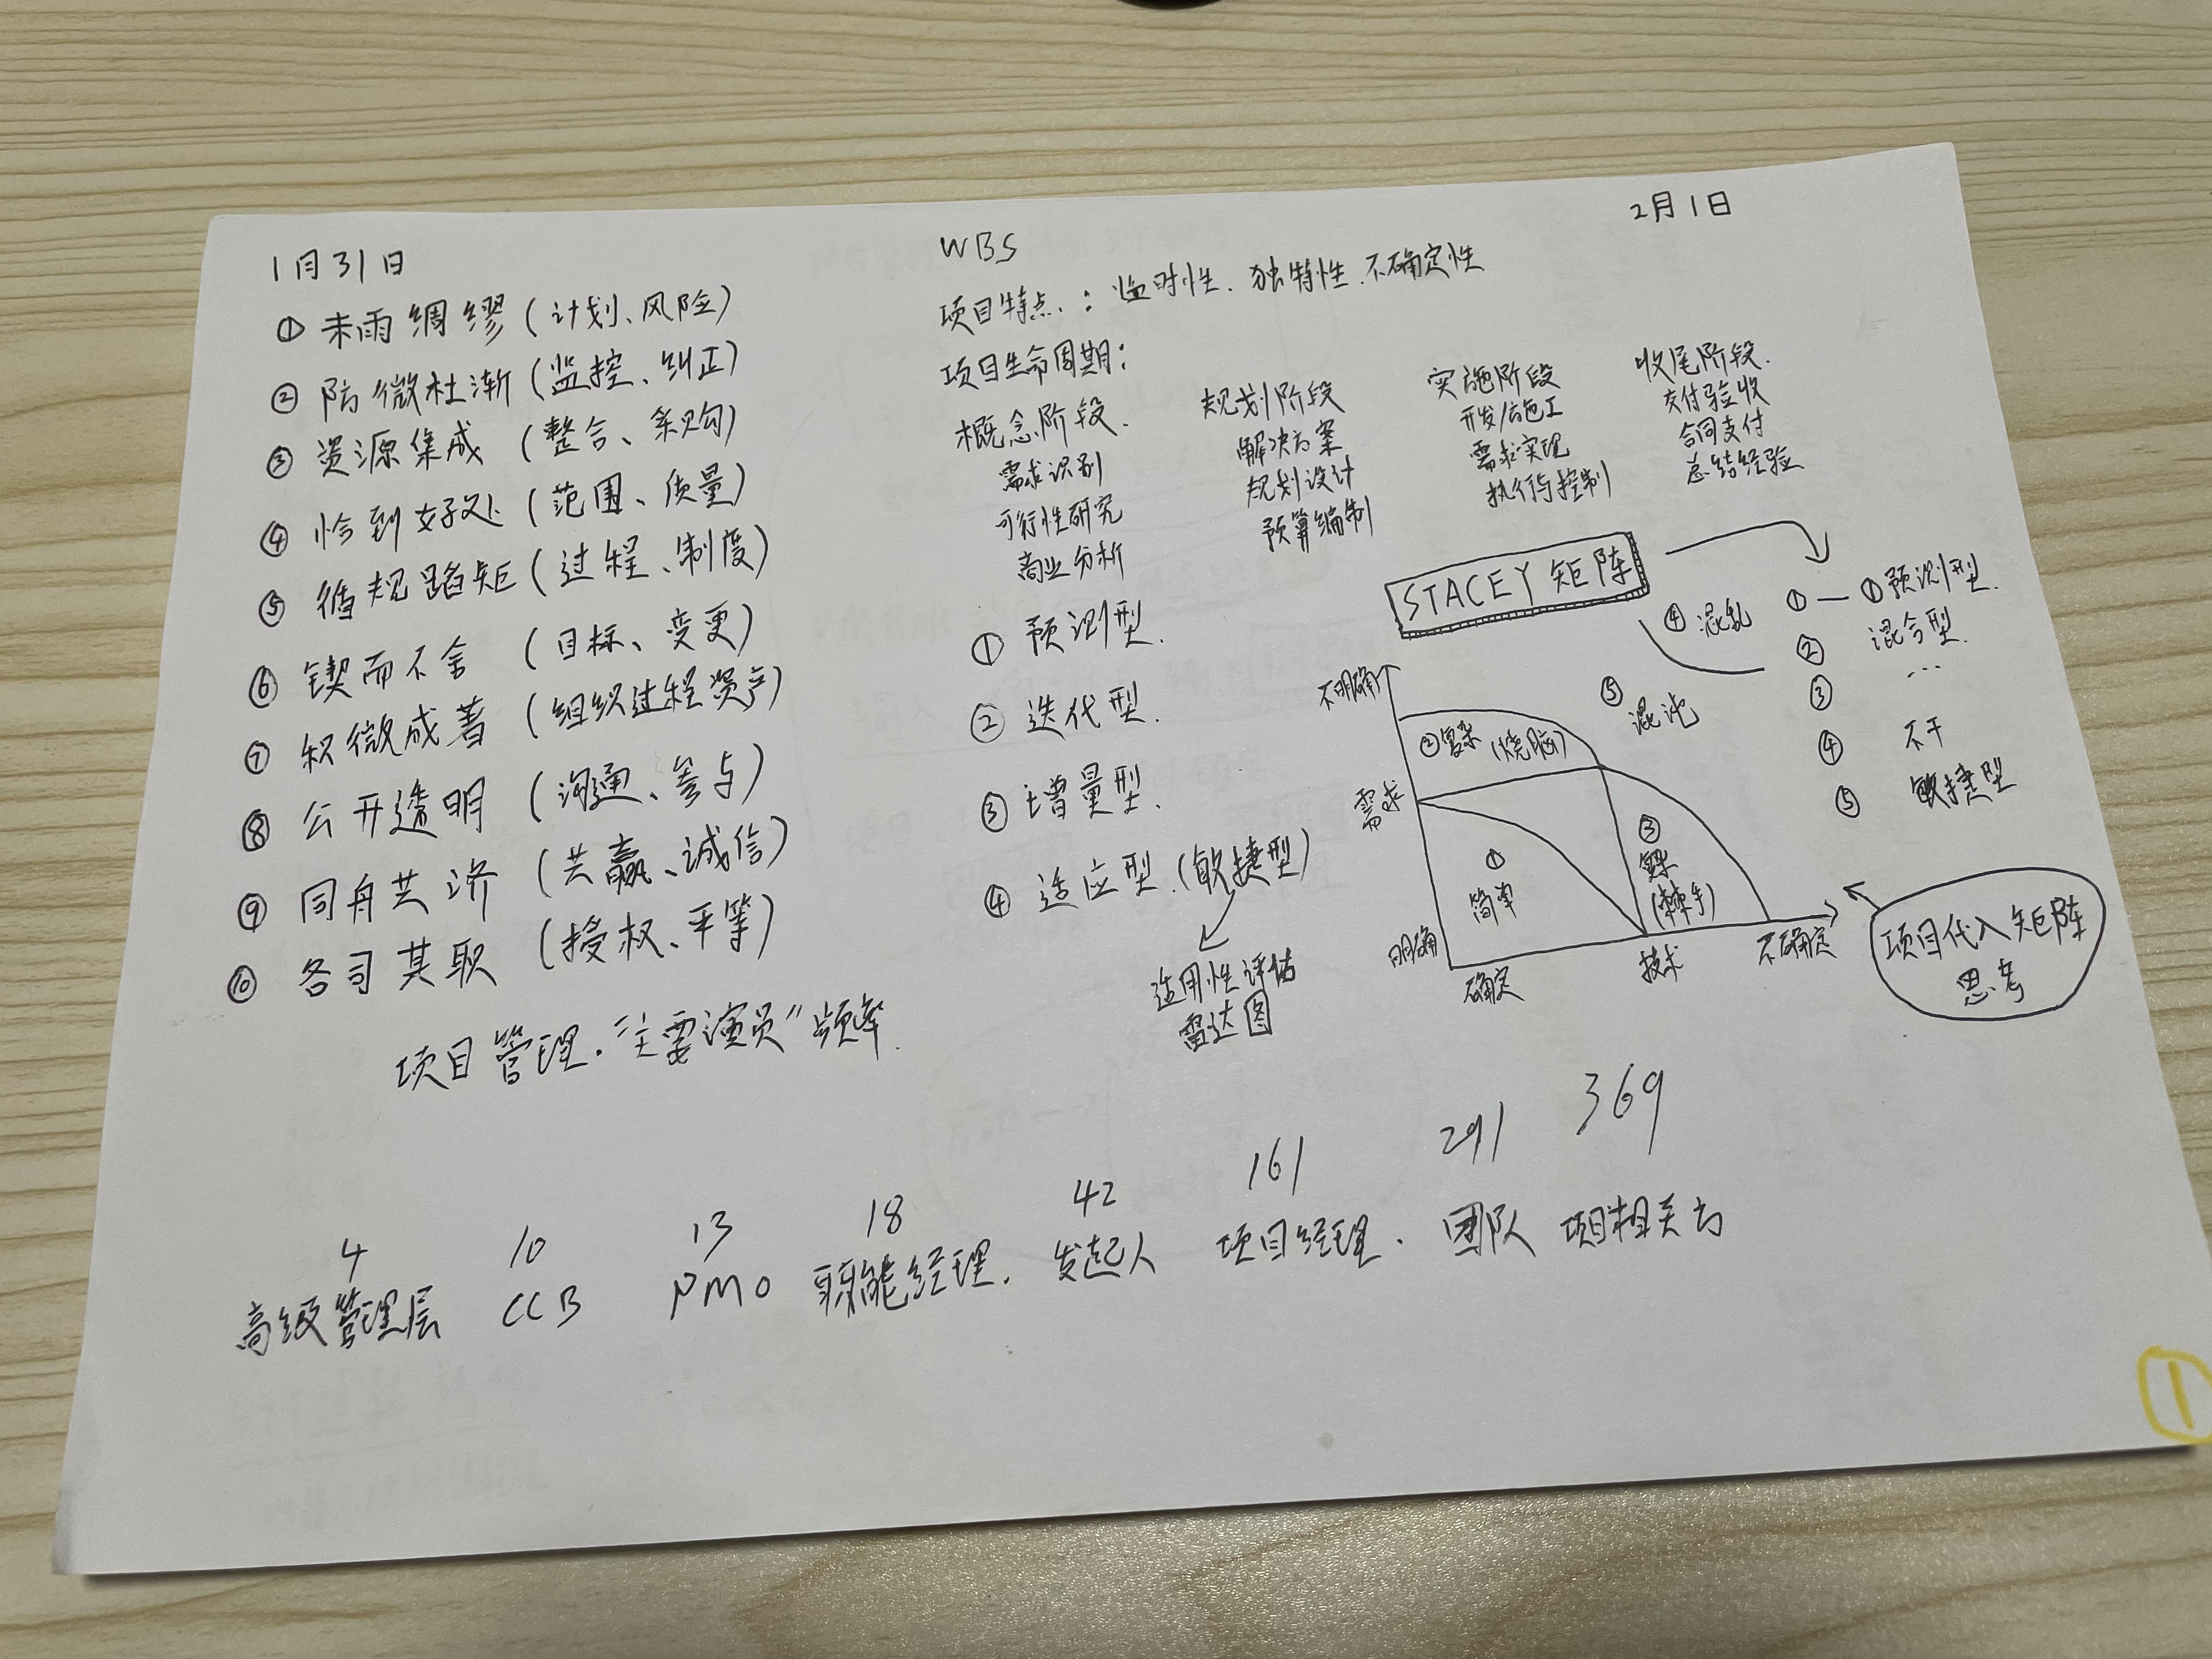 1月31日
① 未雨绸缪（计划、风险）
② 防微杜渐（监控、纠正）
③ 资源集成（整合、采购）
④ 恰到好处（范围、质量）
⑤ 循规蹈矩（过程、制度）
⑥ 锲而不舍（目标、变更）
⑦ 积微成著（组织过程资产）
⑧ 公开透明（沟通、参与）
⑨ 同舟共济（共赢、诚信）
⑩ 各司其职（授权、平等）
项目管理.“主要演员”频率.
WBS
2月1日
项目特点.：临时性.独特性.不确定性
项目生命周期：
概念阶段.
需求识别
可行性研究
商业分析
规划阶段
解决方案
规划设计
预算编制
实施阶段
开发/施工
需求实现
执行与控制
收尾阶段.
交付验收
合同支付
总结经验
① 预测型.
② 迭代型.
③ 增量型.
④ 适应型.（敏捷型）
适用性评估
雷达图
STACEY 矩阵
不明确
需求
明确
确定
技术
不确定
① 简单
② 复杂（烧脑）
③ 复杂（棘手）
④ 混乱
⑤ 混沌
① — ①预测型.
② 混合型.
③ …
④ 不干
⑤ 敏捷型
项目代入矩阵
思考
4 10 13 18 42 161 291 369
高级管理层 CCB PMO 职能经理. 发起人 项目经理. 团队 项目相关方
①